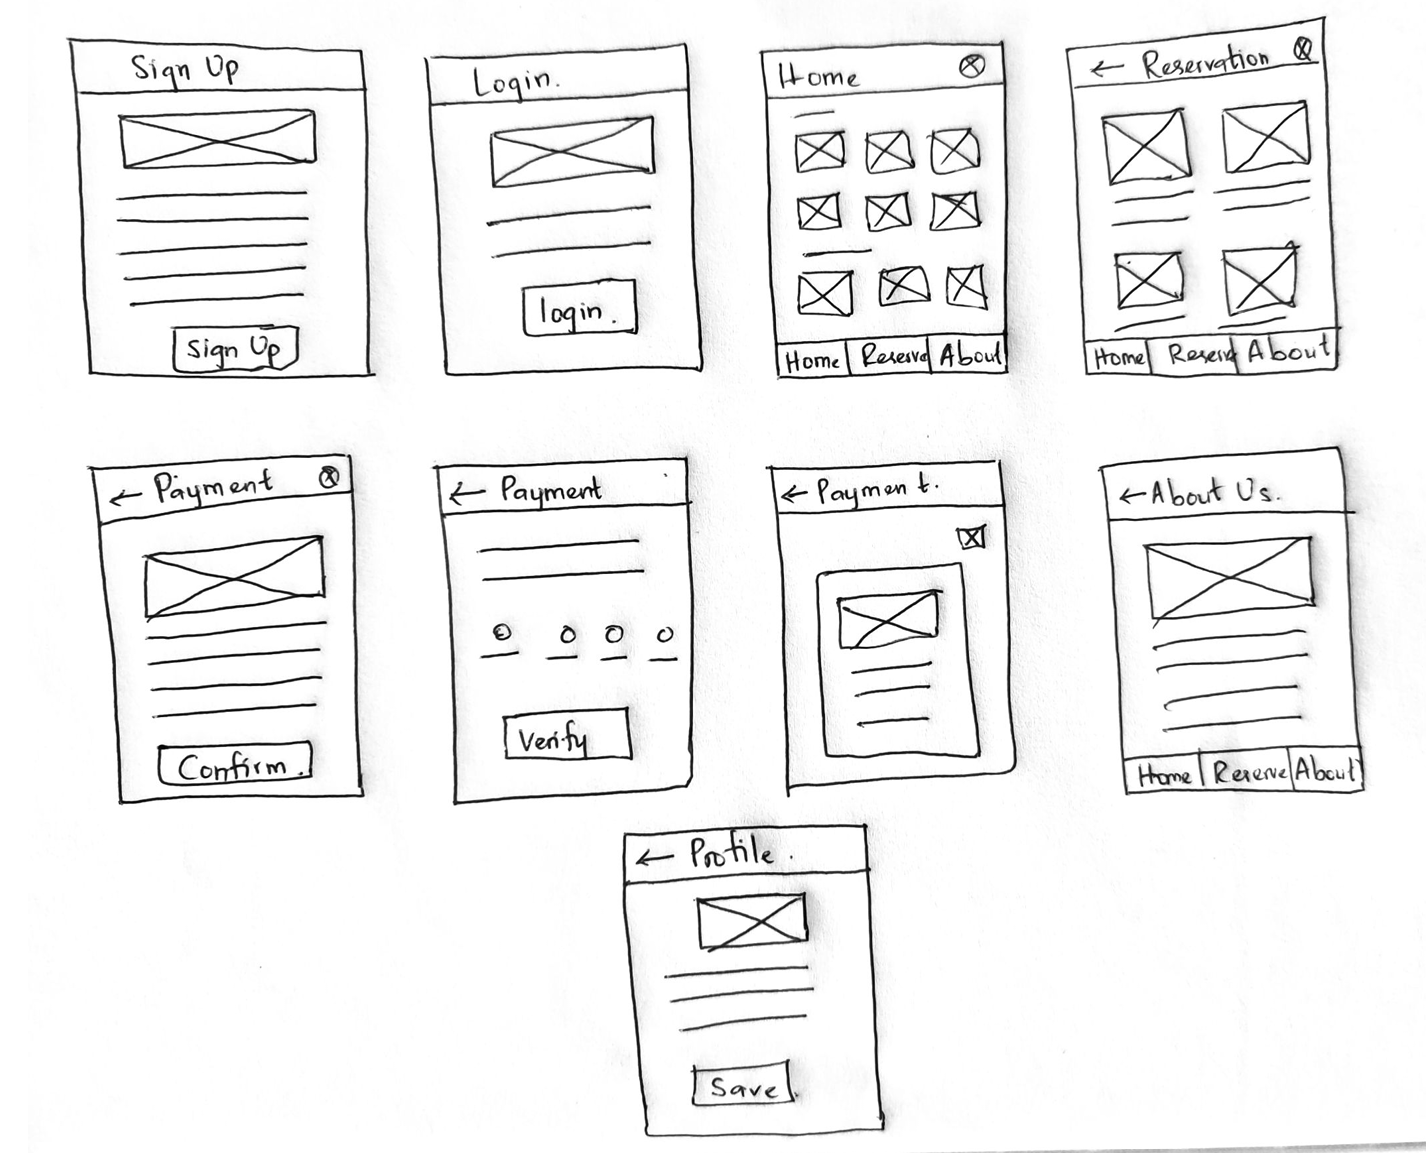 Sign Up
Sign Up
Login.
login.
Home
Home Reserve About
← Reservation
Home Reserve About
← Payment
Confirm.
← Payment
Verify
← Payment.
← About Us.
Home Reserve About
← Profile.
Save